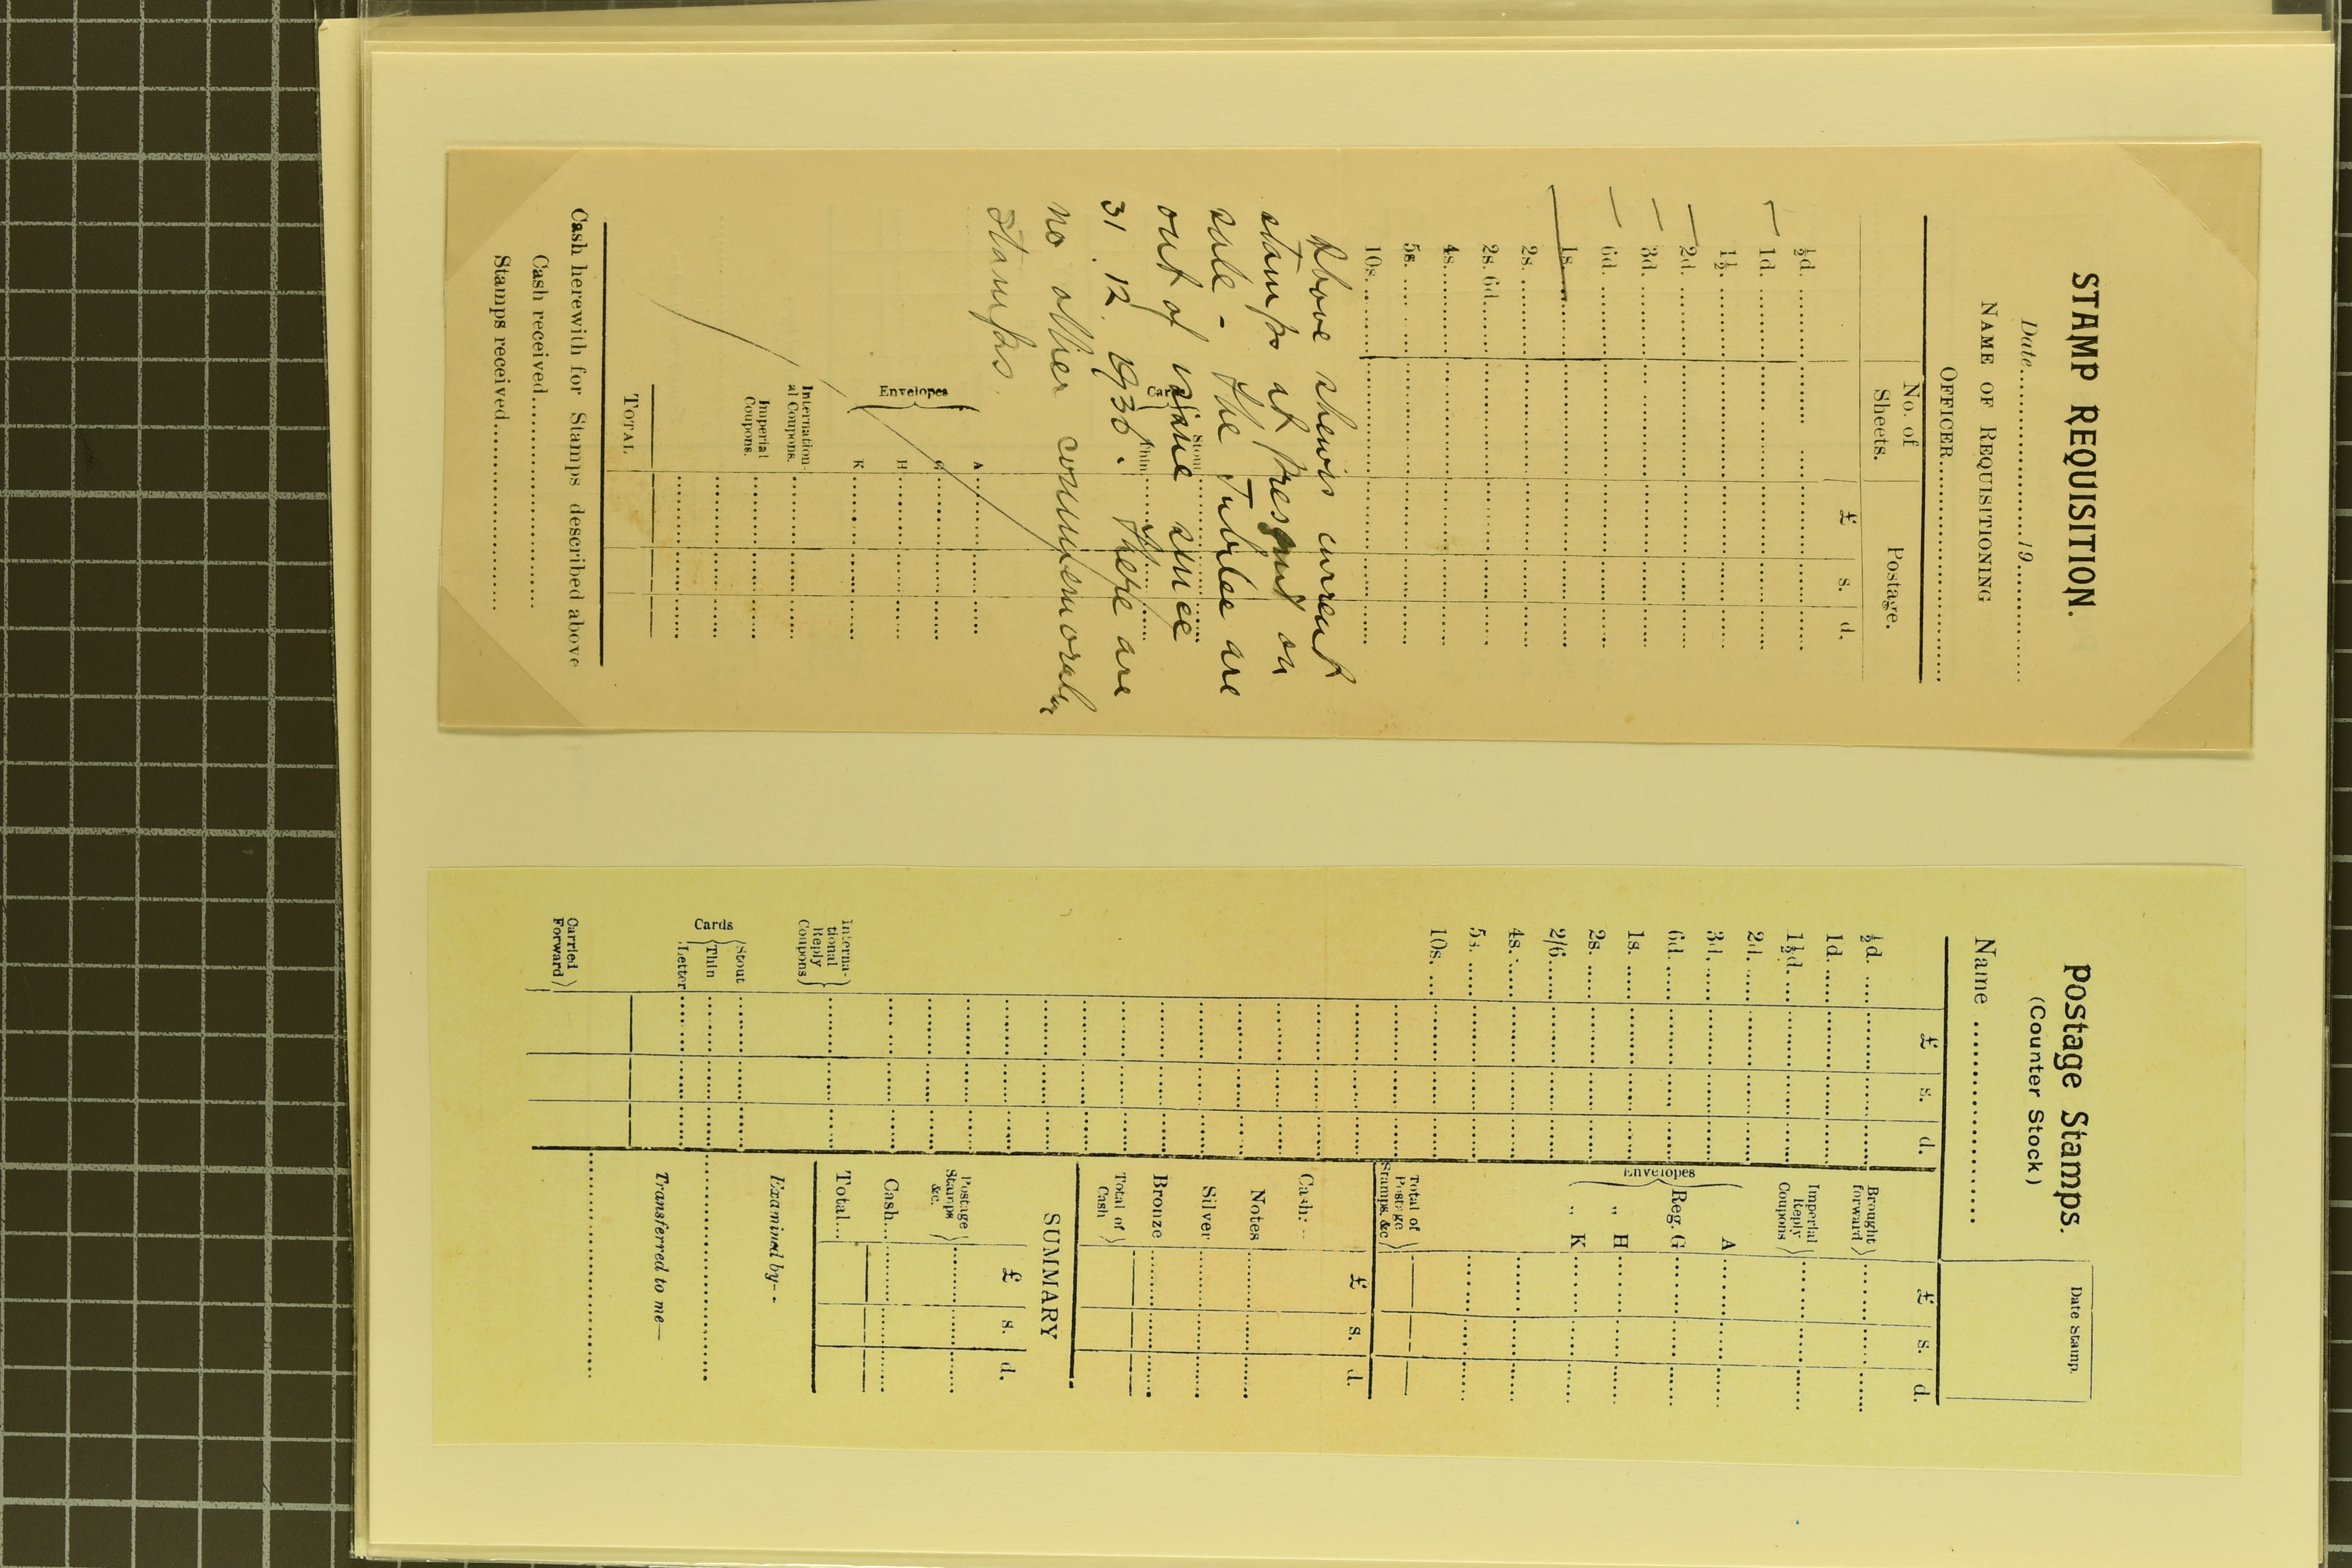 STAMP REQUISITION.
Date....................19............
NAME OF REQUISITIONING
OFFICER..............................
No. of Sheets. Postage.
£ s. d.
½d.
1d.
1½.
2d.
3d.
6d.
1s.
2s.
2s. 6d.
4s.
5s.
10s.
Above shews current
stamps at present on
sale - the Jubilee are
out of issue since
31.12.1936. There are
no other commemorative
stamps.
Cards
Stout
Thin
Envelopes
A
G
H
K
Internation-
al Coupons.
Imperial
Coupons.
TOTAL
Cash herewith for Stamps described above
Cash received....................
Stamps received....................
Postage Stamps.
(Counter Stock)
Date stamp.
Name ....................
£ s. d.
½d.
1d.
1½d.
2d.
3d.
6d.
1s.
2s.
2/6
4s.
5s.
10s.
Interna-
tional
Reply
Coupons
Cards
Stout
Thin
Letter
Carried
Forward
£ s. d.
Brought
forward
Imperial
Reply
Coupons
Envelopes
A
Reg. G
„ H
„ K
Total of
Postage
Stamps, &c
£ s. d.
Cash:-
Notes
Silver
Bronze
Total of
Cash
SUMMARY
£ s. d.
Postage
Stamps
&c.
Cash...
Total...
Examined by--
Transferred to me—